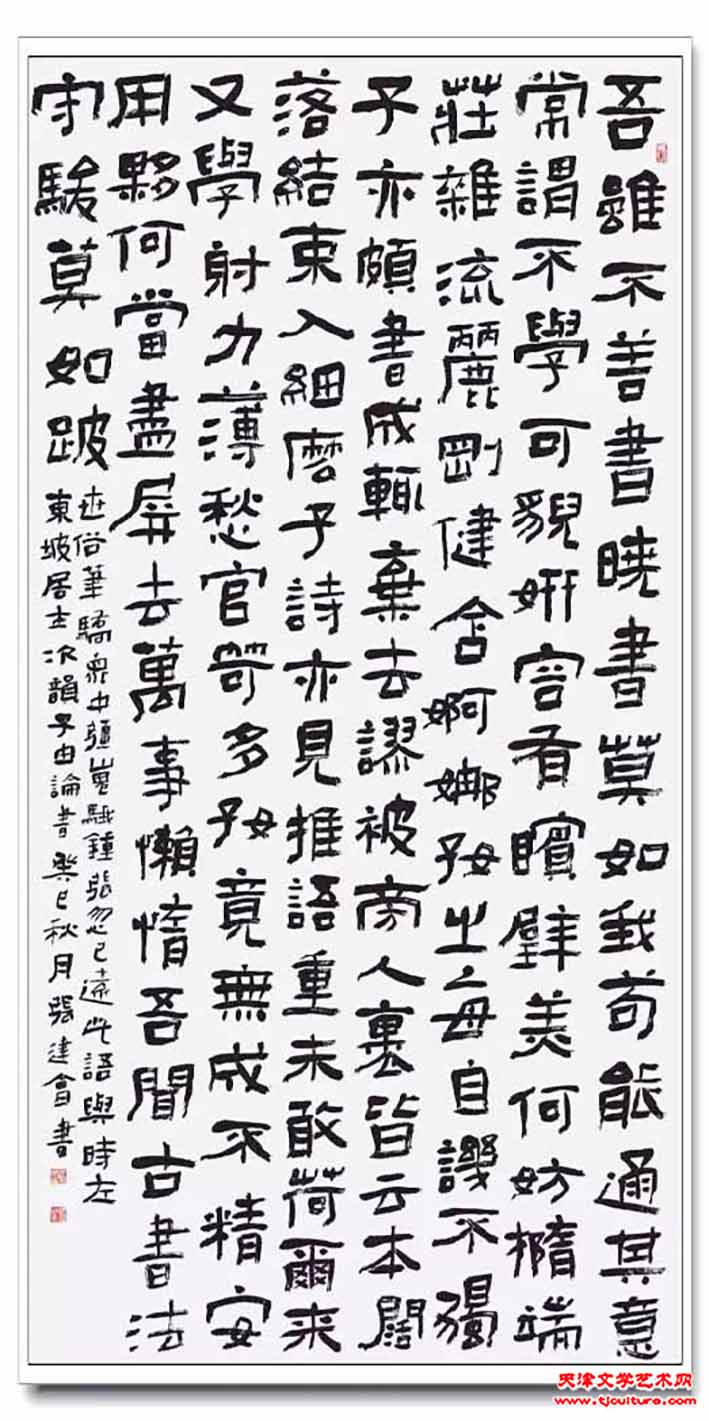 吾雖不善書曉書莫如我苟能通其意
常謂不學可貌妍容有矉璧美何妨橢端
莊雜流麗剛健含婀娜好之每自譏不獨
子亦頗書成輒棄去謬被旁人裹皆云本闊
落結束入細麼子詩亦見推語重未敢荷爾來
又學射力薄愁官笴多好竟無成不精安
用夥何當盡屏去萬事懶惰吾聞古書法
守駿莫如跛
世俗筆驕衆中彊嵬騀鍾張忽已遠此語與時左
東坡居士次韻子由論書癸巳秋月張建會書
天津文学艺术网
www.tjculture.com